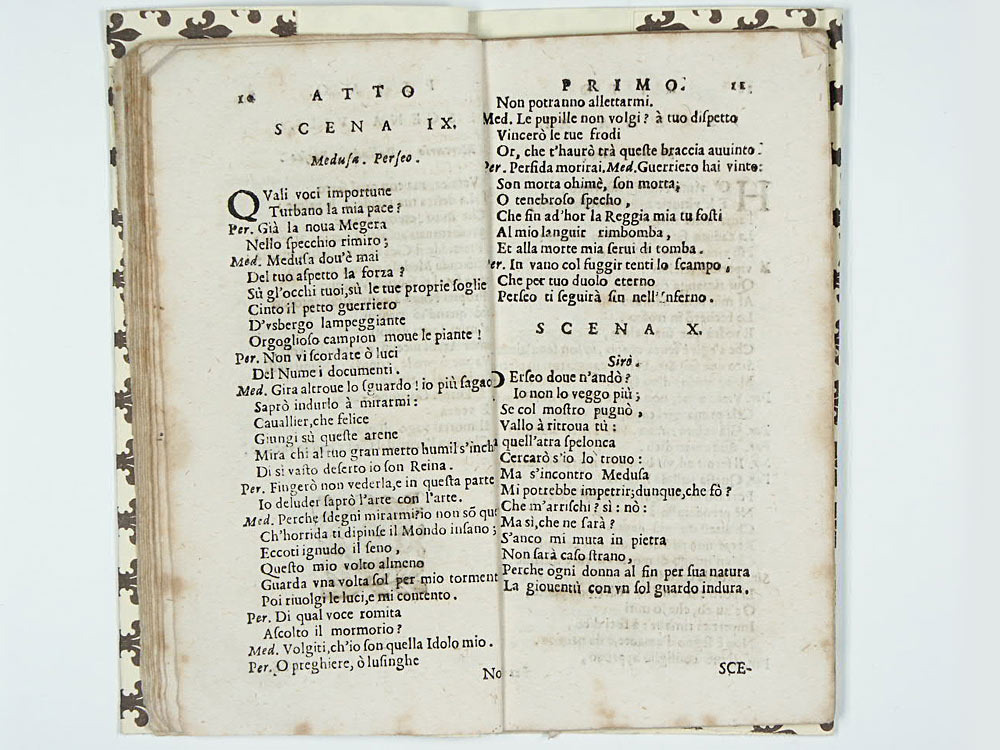 10 ATTO
SCENA IX.
Medusa. Perseo.
QVali voci importune
Turbano la mia pace?
Per. Già la noua Megera
Nello specchio rimiro;
Med. Medusa dou'è mai
Del tuo aspetto la forza?
Sù gl'occhi tuoi, sù le tue proprie soglie
Cinto il petto guerriero
D'vsbergo lampeggiante
Orgoglioso campion moue le piante!
Per. Non vi scordate ò luci
Del Nume i documenti.
Med. Gira altroue lo sguardo! io più sagac
Saprò indurlo à mirarmi:
Cauallier, che felice
Giungi sù queste arene
Mira chi al tuo gran merto humil s'inch
Di sì vasto deserto io son Reina.
Per. Fingerò non vederla, e in questa parte
Io deluder saprò l'arte con l'arte.
Med. Perche sdegni mirarmi? io non sõ que
Ch'horrida ti dipinse il Mondo insano;
Eccoti ignudo il seno,
Questo mio volto almeno
Guarda vna volta sol per mio torment
Poi riuolgi le luci, e mi contento.
Per. Di qual voce romita
Ascolto il mormorio?
Med. Volgiti, ch'io son quella Idolo mio.
Per. O preghiere, ò lusinghe
No
PRIMO. 11
Non potranno allettarmi.
Med. Le pupille non volgi? à tuo dispetto
Vincerò le tue frodi
Or, che t'haurò trà queste braccia auuinto.
Per. Perfida morirai. Med. Guerriero hai vinto:
Son morta ohimè, son morta;
O tenebroso specho,
Che sin ad'hor la Reggia mia tu fosti
Al mio languir rimbomba,
Et alla morte mia serui di tomba.
Per. In vano col fuggir tenti lo scampo,
Che per tuo duolo eterno
Perseo ti seguirà sin nell'Inferno.
SCENA X.
Sirò.
PErseo doue n'andò?
Io non lo veggo più;
Se col mostro pugnò,
Vallo à ritroua tù:
quell'atra spelonca
Cercarò s'io lo trouo:
Ma s'incontro Medusa
Mi potrebbe impetrir; dunque, che fò?
Che m'arrischi? sì: nò:
Ma sì, che ne sarà?
S'anco mi muta in pietra
Non sarà caso strano,
Perche ogni donna al fin per sua natura
La giouentù con vn sol guardo indura.
SCE-